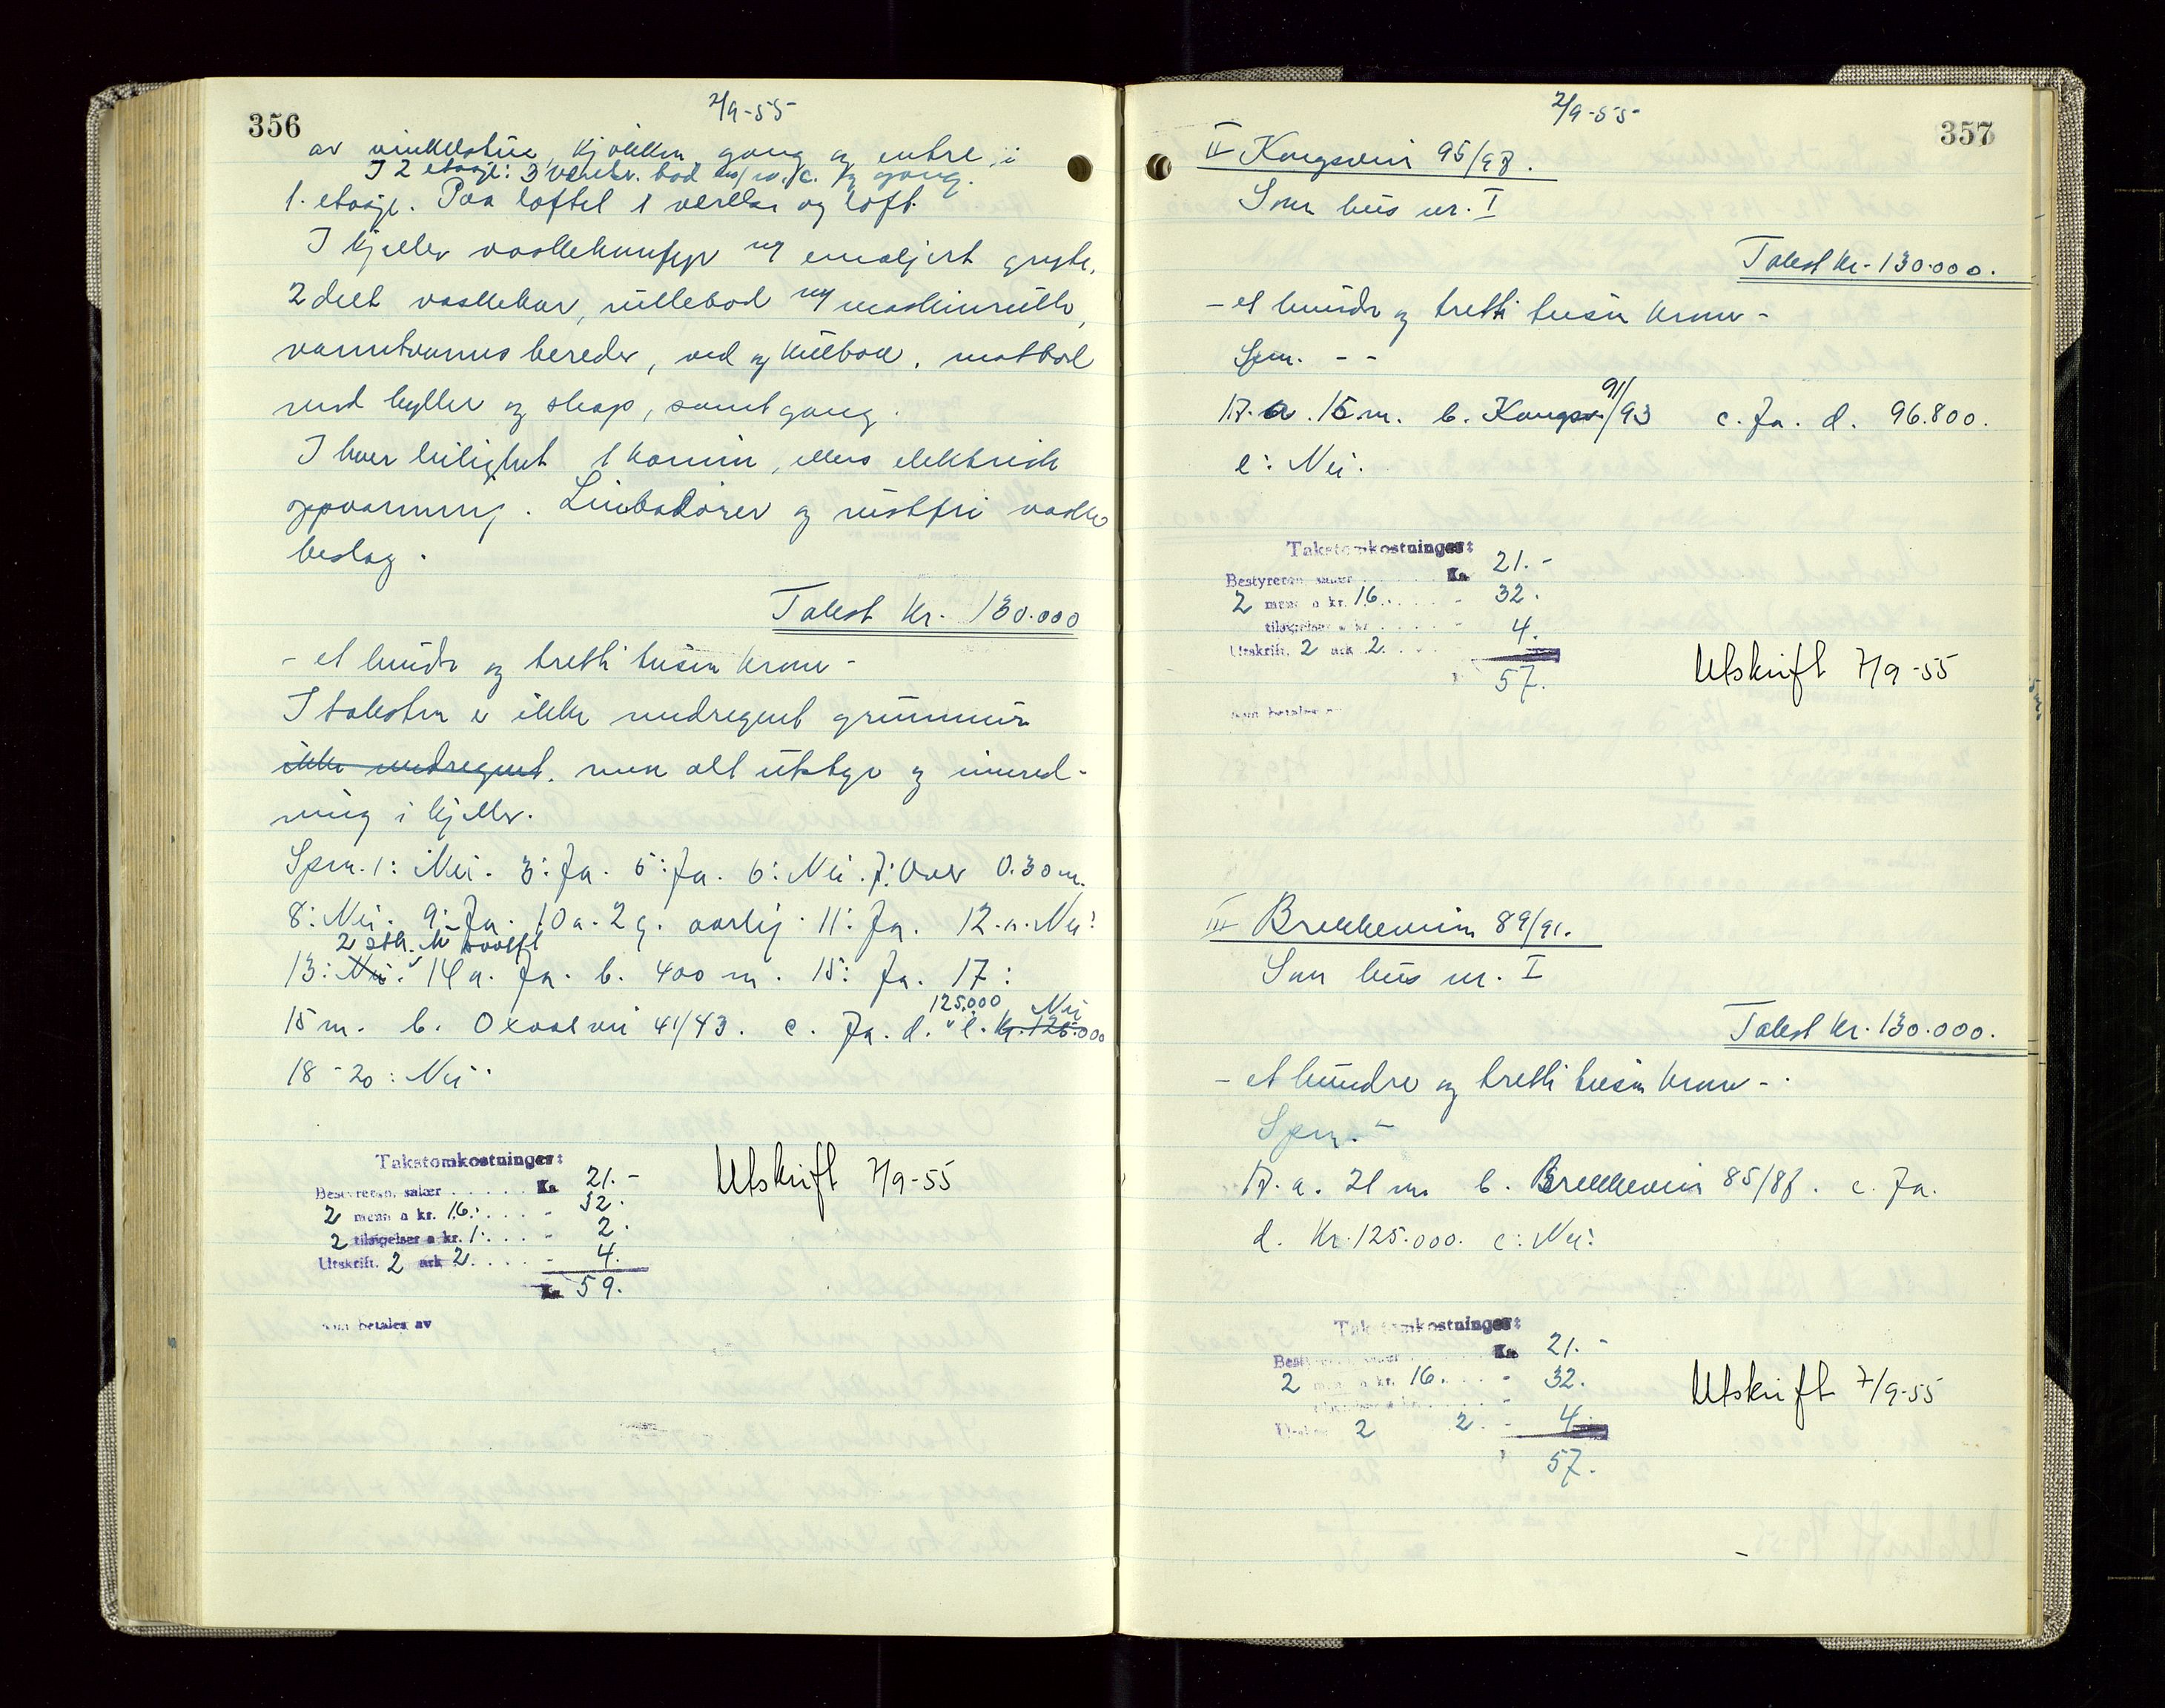 356
2/9-55
av vinkelstue, kjøkken gang og entre, i
I 2 etasje: 3 verelser. bad m/w.c. og gang.
1. etasje. Paa loftet 1 verelse og loft.
I kjeller vaskekum m/ emaljert gryte,
2 delt vaskekar, rullebod m/ maskinrulle,
varmtvannsbereder, ved og kulbod. matbod
med hyller og skap, samt gang.
I hver leilighet 1 kamin, ellers elektrisk
oppvarming. Limbadörer og rustfri vaske
beslag.
Takst kr. 130.000
- et hundre og tretti tusen kroner -
I taksten er ikke medregnet grunnmur
ikke medregnet. men alt utstyr og innred-
ning i kjeller.
Spm. 1: Nei. 3: Ja. 5: Ja. 6: Nei. 7: Over 0.30 m.
8: Nei. 9: Ja. 10 a. 2 g. aarlig. 11: Ja. 12. a. Nei.
2 stk.
13: Nei. 14 a. Ja. b. 400 m. 15: Ja. 17:
125.000 Nei
15 m. b. Oxvoll vei 41/43. c. Ja. d. " e. Kr. 125.000
18 - 20: Nei.
Takstomkostninger:
Bestyreren, salær ..... Kr. 21.-
2 menn a kr. 16. .... - 32.
2 tilsigelser a kr. 1. ... - 2.
Utskrift. 2 ark 2. .... - 4.
Kr. 59.
som betales av
Utskrift 7/9-55
357
2/9-55
II Kongsvei 95/97.
Som hus nr. I
Takst kr. 130.000.
- et hundre og tretti tusen kroner -
Spm. - -
91/
17. a. 15 m. b. Kongsv. /93 c. Ja. d. 96.800.
e: Nei.
Takstomkostninger:
Bestyreren salær Kr. 21.-
2 menn a kr. 16. .... - 32.
tilsigelser a kr. ..... -
Utskrift. 2 ark 2. .... 4.
57.
som betales av
Utskrift 7/9-55
III Brekkeveien 89/91.
Som hus nr. I
Takst kr. 130.000.
- et hundre og tretti tusen kroner -.
Spm. -
17. a. 21 m. b. Brekkeveien 85/87. c. Ja.
d. Kr. 125.000. e: Nei.
Takstomkostninger:
Bestyreren salær Kr. 21.-
2 menn a kr. 16. ... - 32.
2 2. - 4.
57.
Utskrift 7/9-55